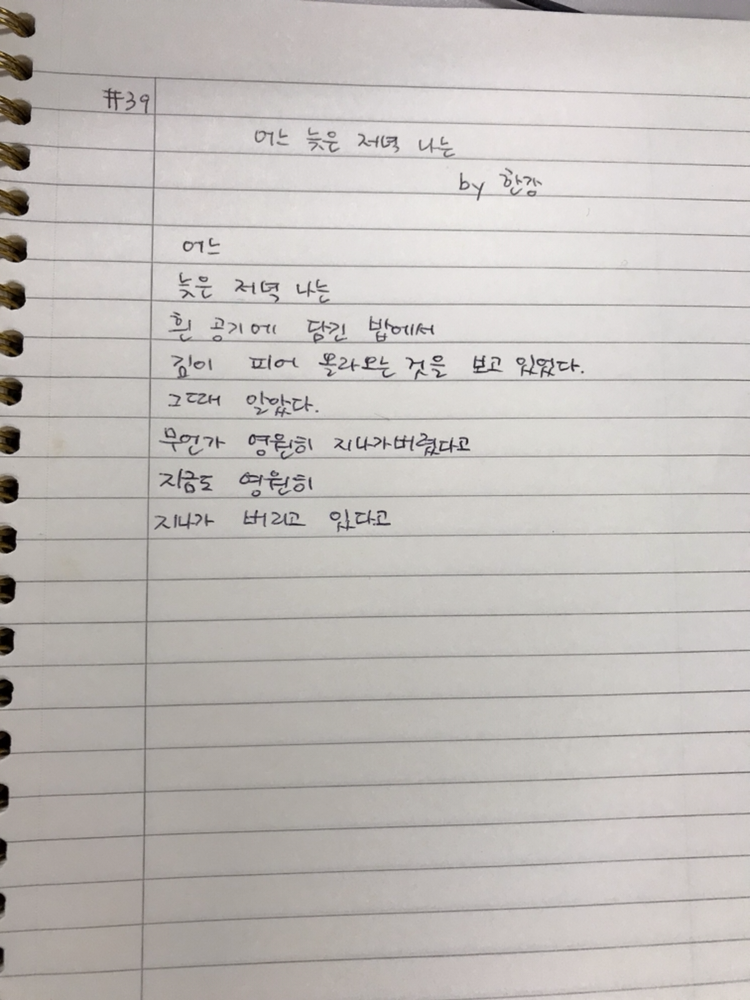 #39
어느 늦은 저녁 나는
by 한강
어느
늦은 저녁 나는
흰 공기에 담긴 밥에서
김이 피어 올라오는 것을 보고 있었다.
그때 알았다.
무언가 영원히 지나가버렸다고
지금도 영원히
지나가 버리고 있다고